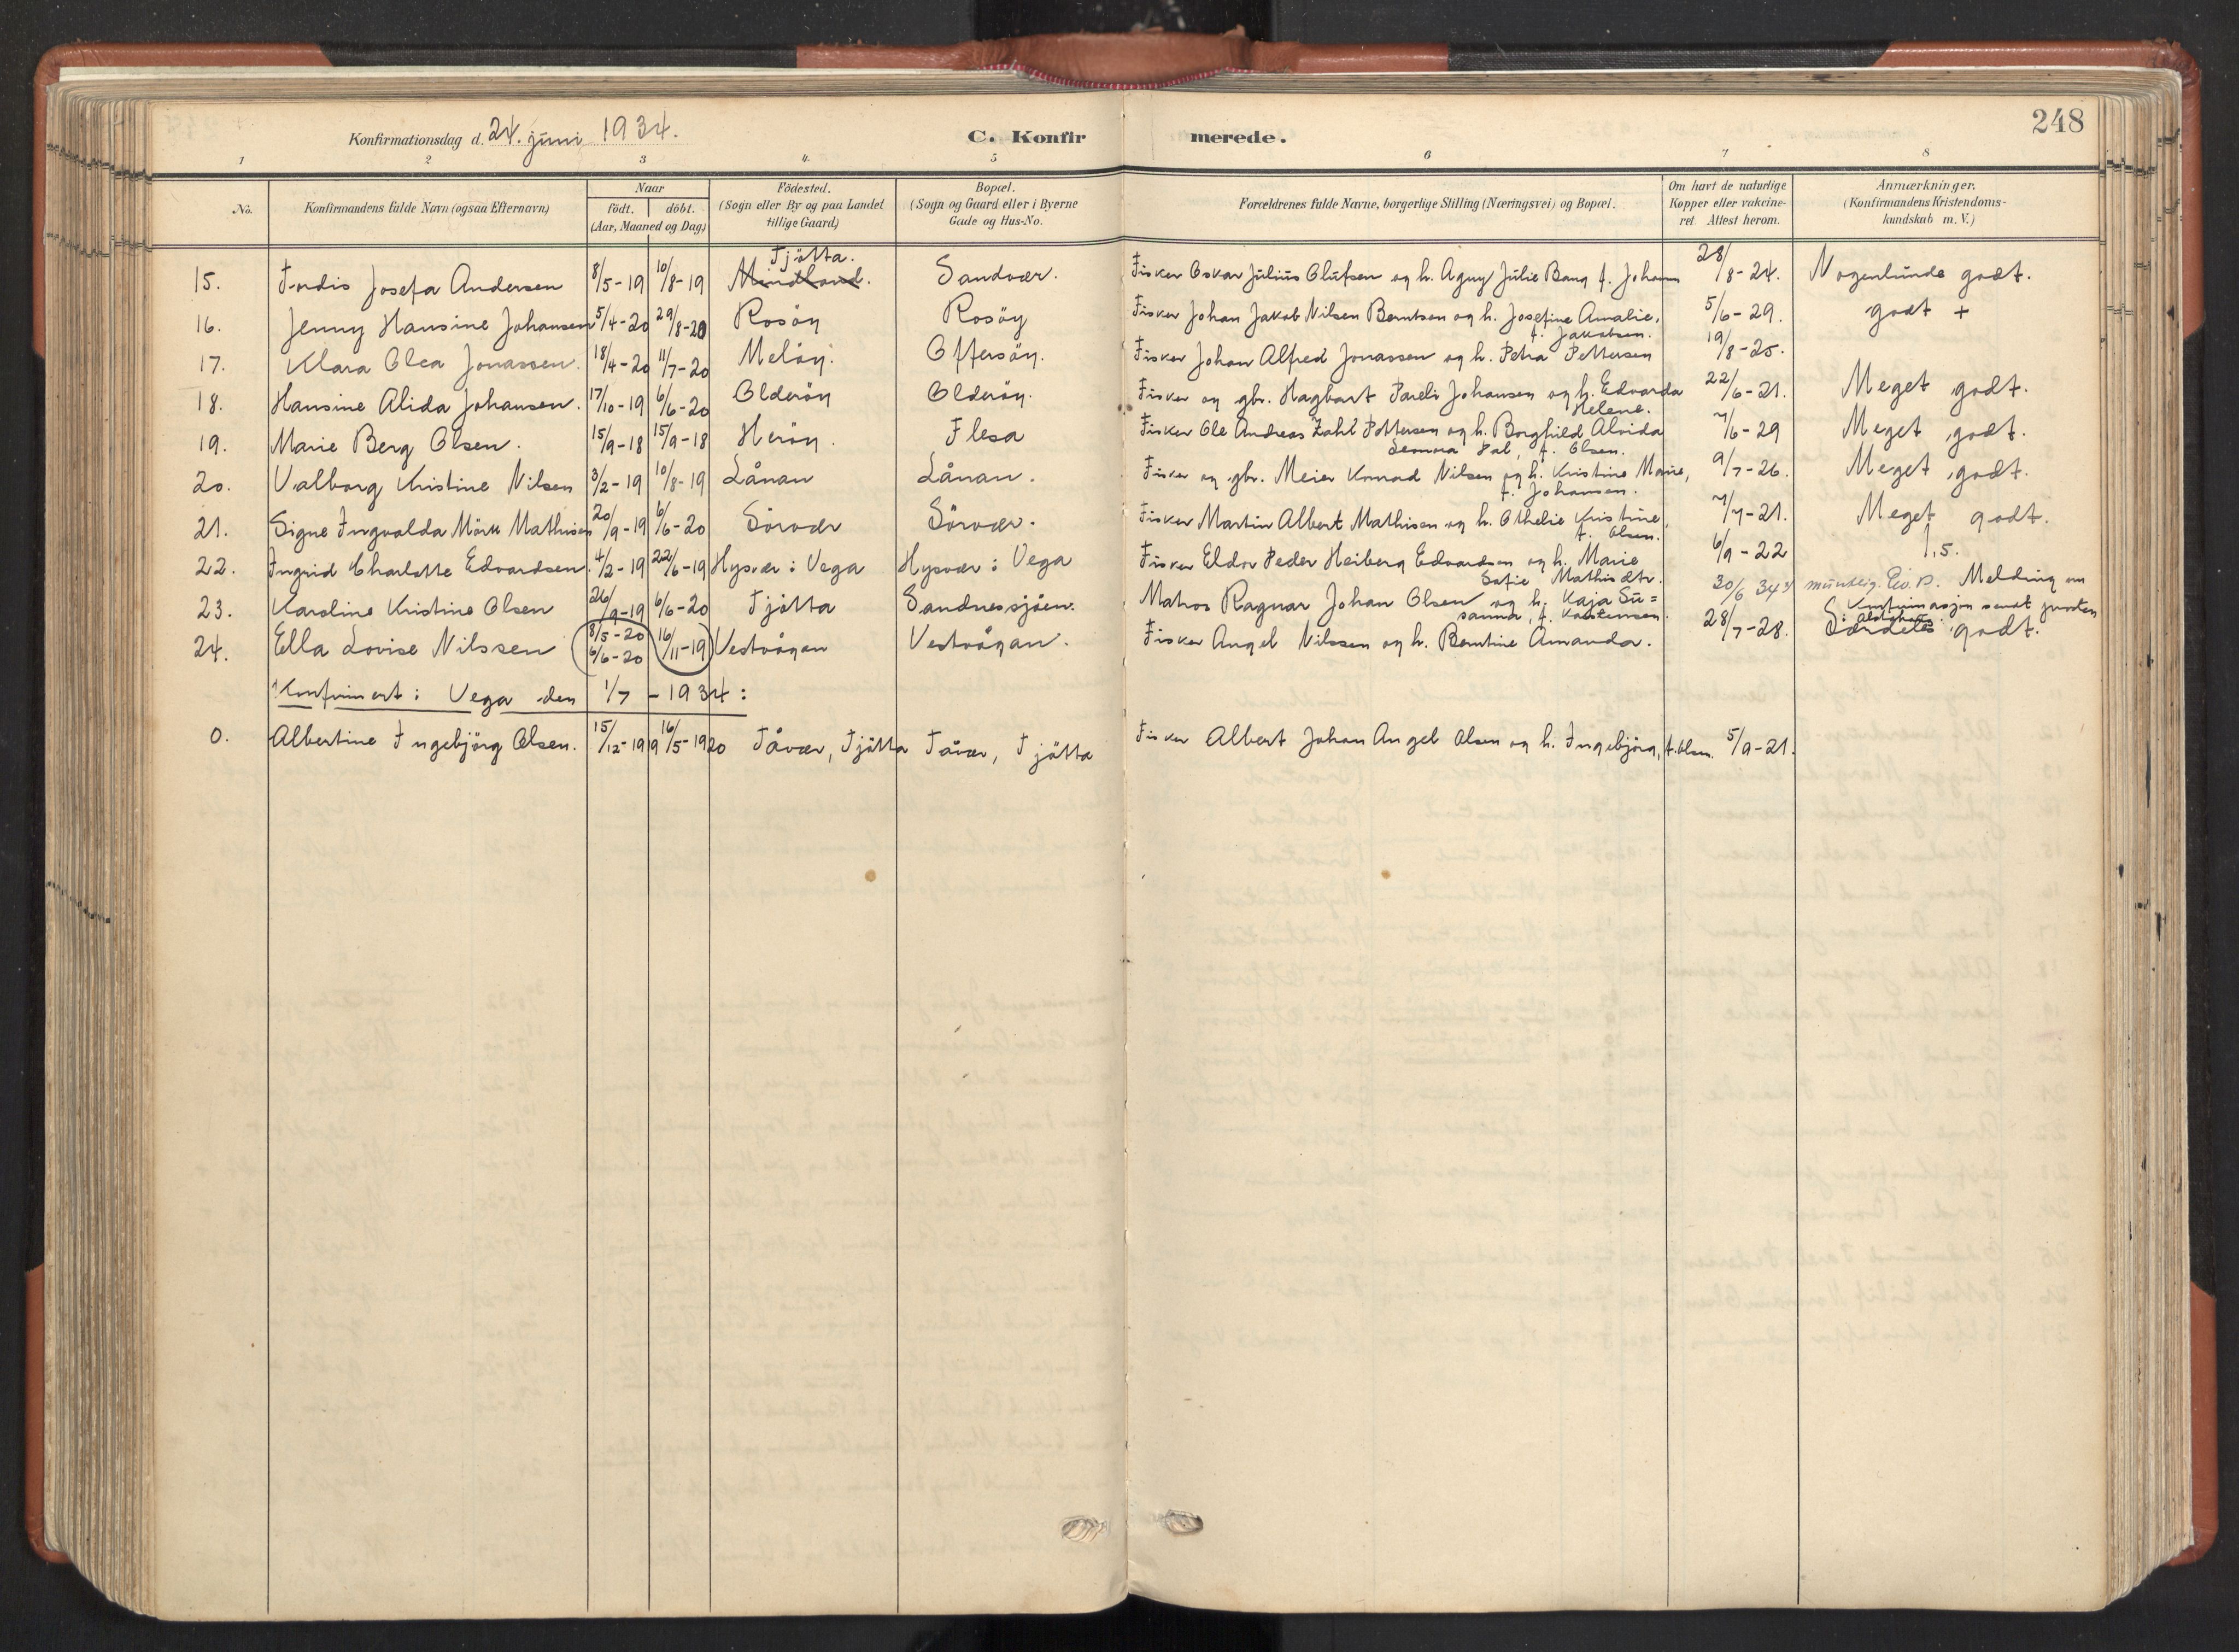 248
Konfirmationsdag d. 24. juni 1934.
C. Konfirmerede.
1 2 3 4. 5 6 7 8
No. Konfirmandens fulde Navn (ogsaa Efternavn) Naar födt. döbt. (Aar, Maaned og Dag) Födested. (Sogn eller By og paa Landet tillige Gaard) Bopæl. (Sogn og Gaard eller i Byerne Gade og Hus-No. Forældrenes fulde Navne, borgerlige Stilling (Næringsvei) og Bopæl. Om havt de naturlige Kopper eller vakcineret. Attest herom. Anmærkninger. (Konfirmandens Kristendomskundskab m. V.)
15. Fordis Josefa Andersen 8/5-19 10/8-19 Mindland. Tjötta. Sandvær. Fisker Oskar Julius Olufsen og h. Agny Julie Bang f. Johans 28/8-24. Nogenlunde godt.
16. Jenny Hansine Johansen 5/4-20 29/8-20 Rosöy Rosöy Fisker Johan Jakob Nilsen Berntsen og h. Josefine Amalie, f. Jakobsen. 5/6-29. godt +
17. Klara Olea Jonassen. 18/4-20 11/7-20 Melöy. Offersöy. Fisker Johan Alfred Jonassen og h. Petra Pettersen 19/8-25.
18. Hansine Alida Johansen. 17/10-19 6/6-20 Olderöy Olderöy. Fisker og gbr. Hagbart Pareli Johansen og h. Edvarda Helene. 22/6-21. Meget godt.
19. Marie Berg Olsen. 15/9-18 15/9-18 Heröy. Flesa Fisker Ole Andreas Zahl Pettersen og h. Borghild Alvida Leonora Pal, f. Olsen. 7/6-29 Meget godt.
20. Valborg Kristine Nilsen 3/2-19 10/8-19 Lånan Lånan. Fisker og gbr. Meier Konrad Nilsen og h. Kristine Marie, f. Johansen. 9/7-26. Meget godt.
21. Signe Ingvalda Mörk Mathisen 20/9-19 6/6-20 Sörvær Sörvær. Fisker Martin Albert Mathisen og h. Othelie Kristine, f. Olsen. 7/7-21. Meget godt.
22. Ingrid Charlotte Edvardsen. 4/2-19 22/6-19 Hysvær i Vega Hysvær i Vega Fisker Eldor Peder Heiberg Edvardsen og h. Marie Sofie Mathisdtr. 6/9-22 1,5.
23. Karoline Kristine Olsen 26/9-19 6/6-20 Tjötta Sandnessjöen. Matros Ragnar Johan Olsen og h. Kaja Susanna, f. Karstensen. 30/6 34 muntlig. Melding om Konfirmasjon sendt presten i Alstahaug.
24. Ella Lovise Nilssen 8/5-20 6/6-20 16/11-19 Vestvågan Vestvågan. Fisker Angel Nilssen og h. Berntine Amanda. 28/7-28. Særdeles godt.
Konfirmert i Vega den 1/7-1934:
0. Albertine Ingebjörg Olsen. 15/12-1919 16/5-1920 Tåvær, Tjötta Tåvær, Tjötta Fisker Albert Johan Angel Olsen og h. Ingebjörg, f. Olsen. 5/9-21.